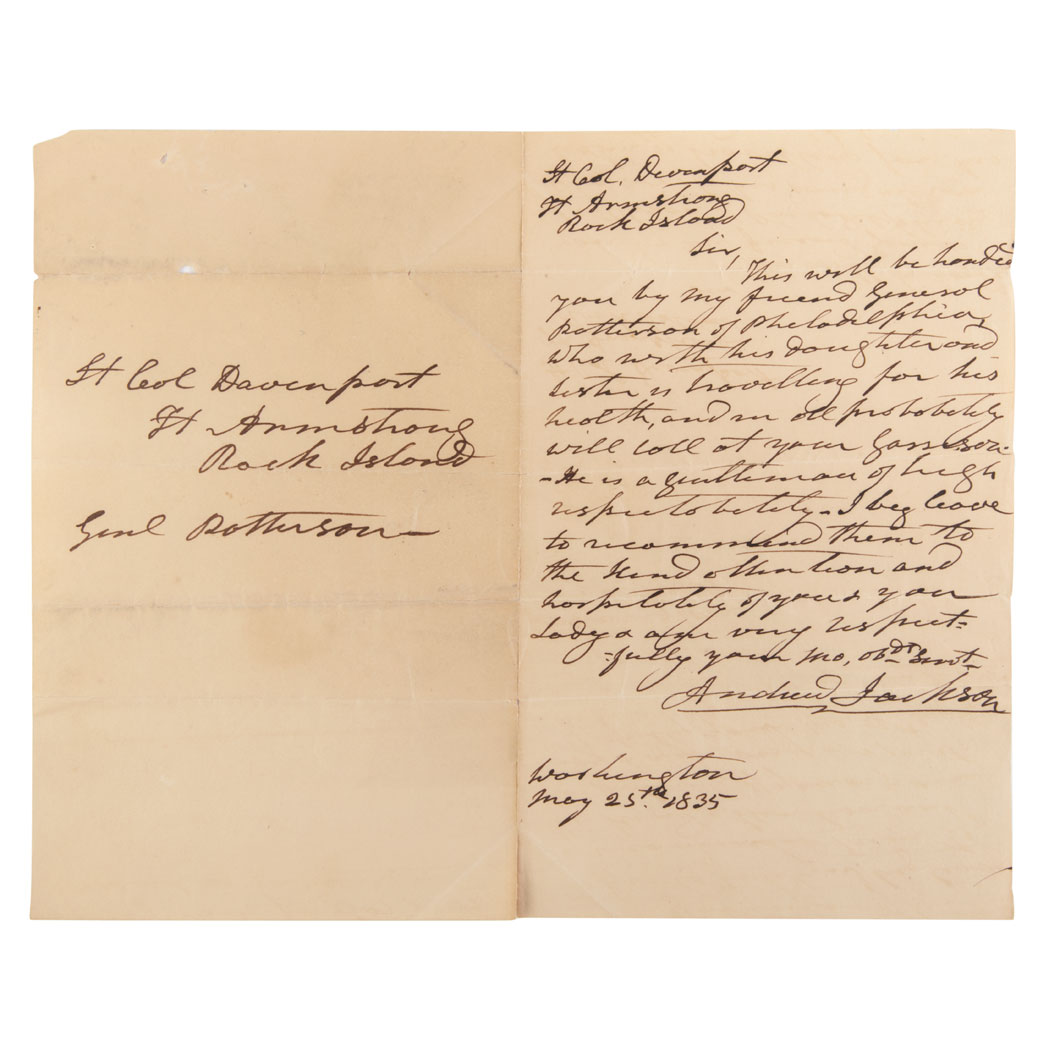 Lt Col Davenport
Ft Armstrong
Rock Island
Genl Patterson—
Lt Col. Davenport
Ft Armstrong
Rock Island
Sir,
This will be handed
you by my friend General
Patterson of Pheladelphia,
who with his daughter and
sister is travelling for his
health, and in all probobelity
will call at your Garrison.
- He is a gentleman of high
respectobelity - I beg leave
to recommend them to
the kind attention and
hospitolity of you & you
Lady & am very respect=
=fully your mo, obdt Servt-
Andrew Jackson
Washington
May 25th. 1835